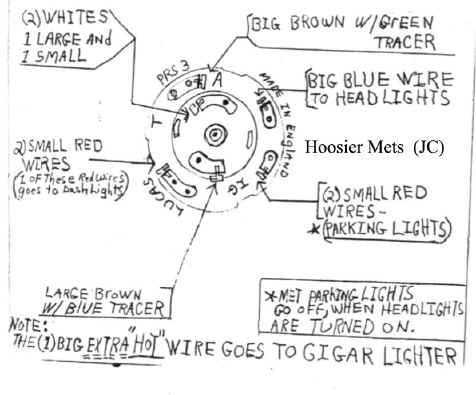 (2) WHITES
1 LARGE AND
1 SMALL
BIG BROWN W/GREEN
TRACER
PRS3
A
MADE IN ENGLAND
BIG BLUE WIRE
TO HEADLIGHTS
T
Hoosier Mets (JC)
2) SMALL RED
WIRES
(1 OF These Red Wires
goes to Dash Lights)
LUCAS
IG
(2) SMALL RED
WIRES -
* (PARKING LIGHTS)
LARGE Brown
W/ BLUE TRACER
* MET PARKING LIGHTS
GO OFF, WHEN HEADLIGHTS
ARE TURNED ON.
NOTE:
THE (1) BIG EXTRA "HOT" WIRE GOES TO GIGAR LIGHTER